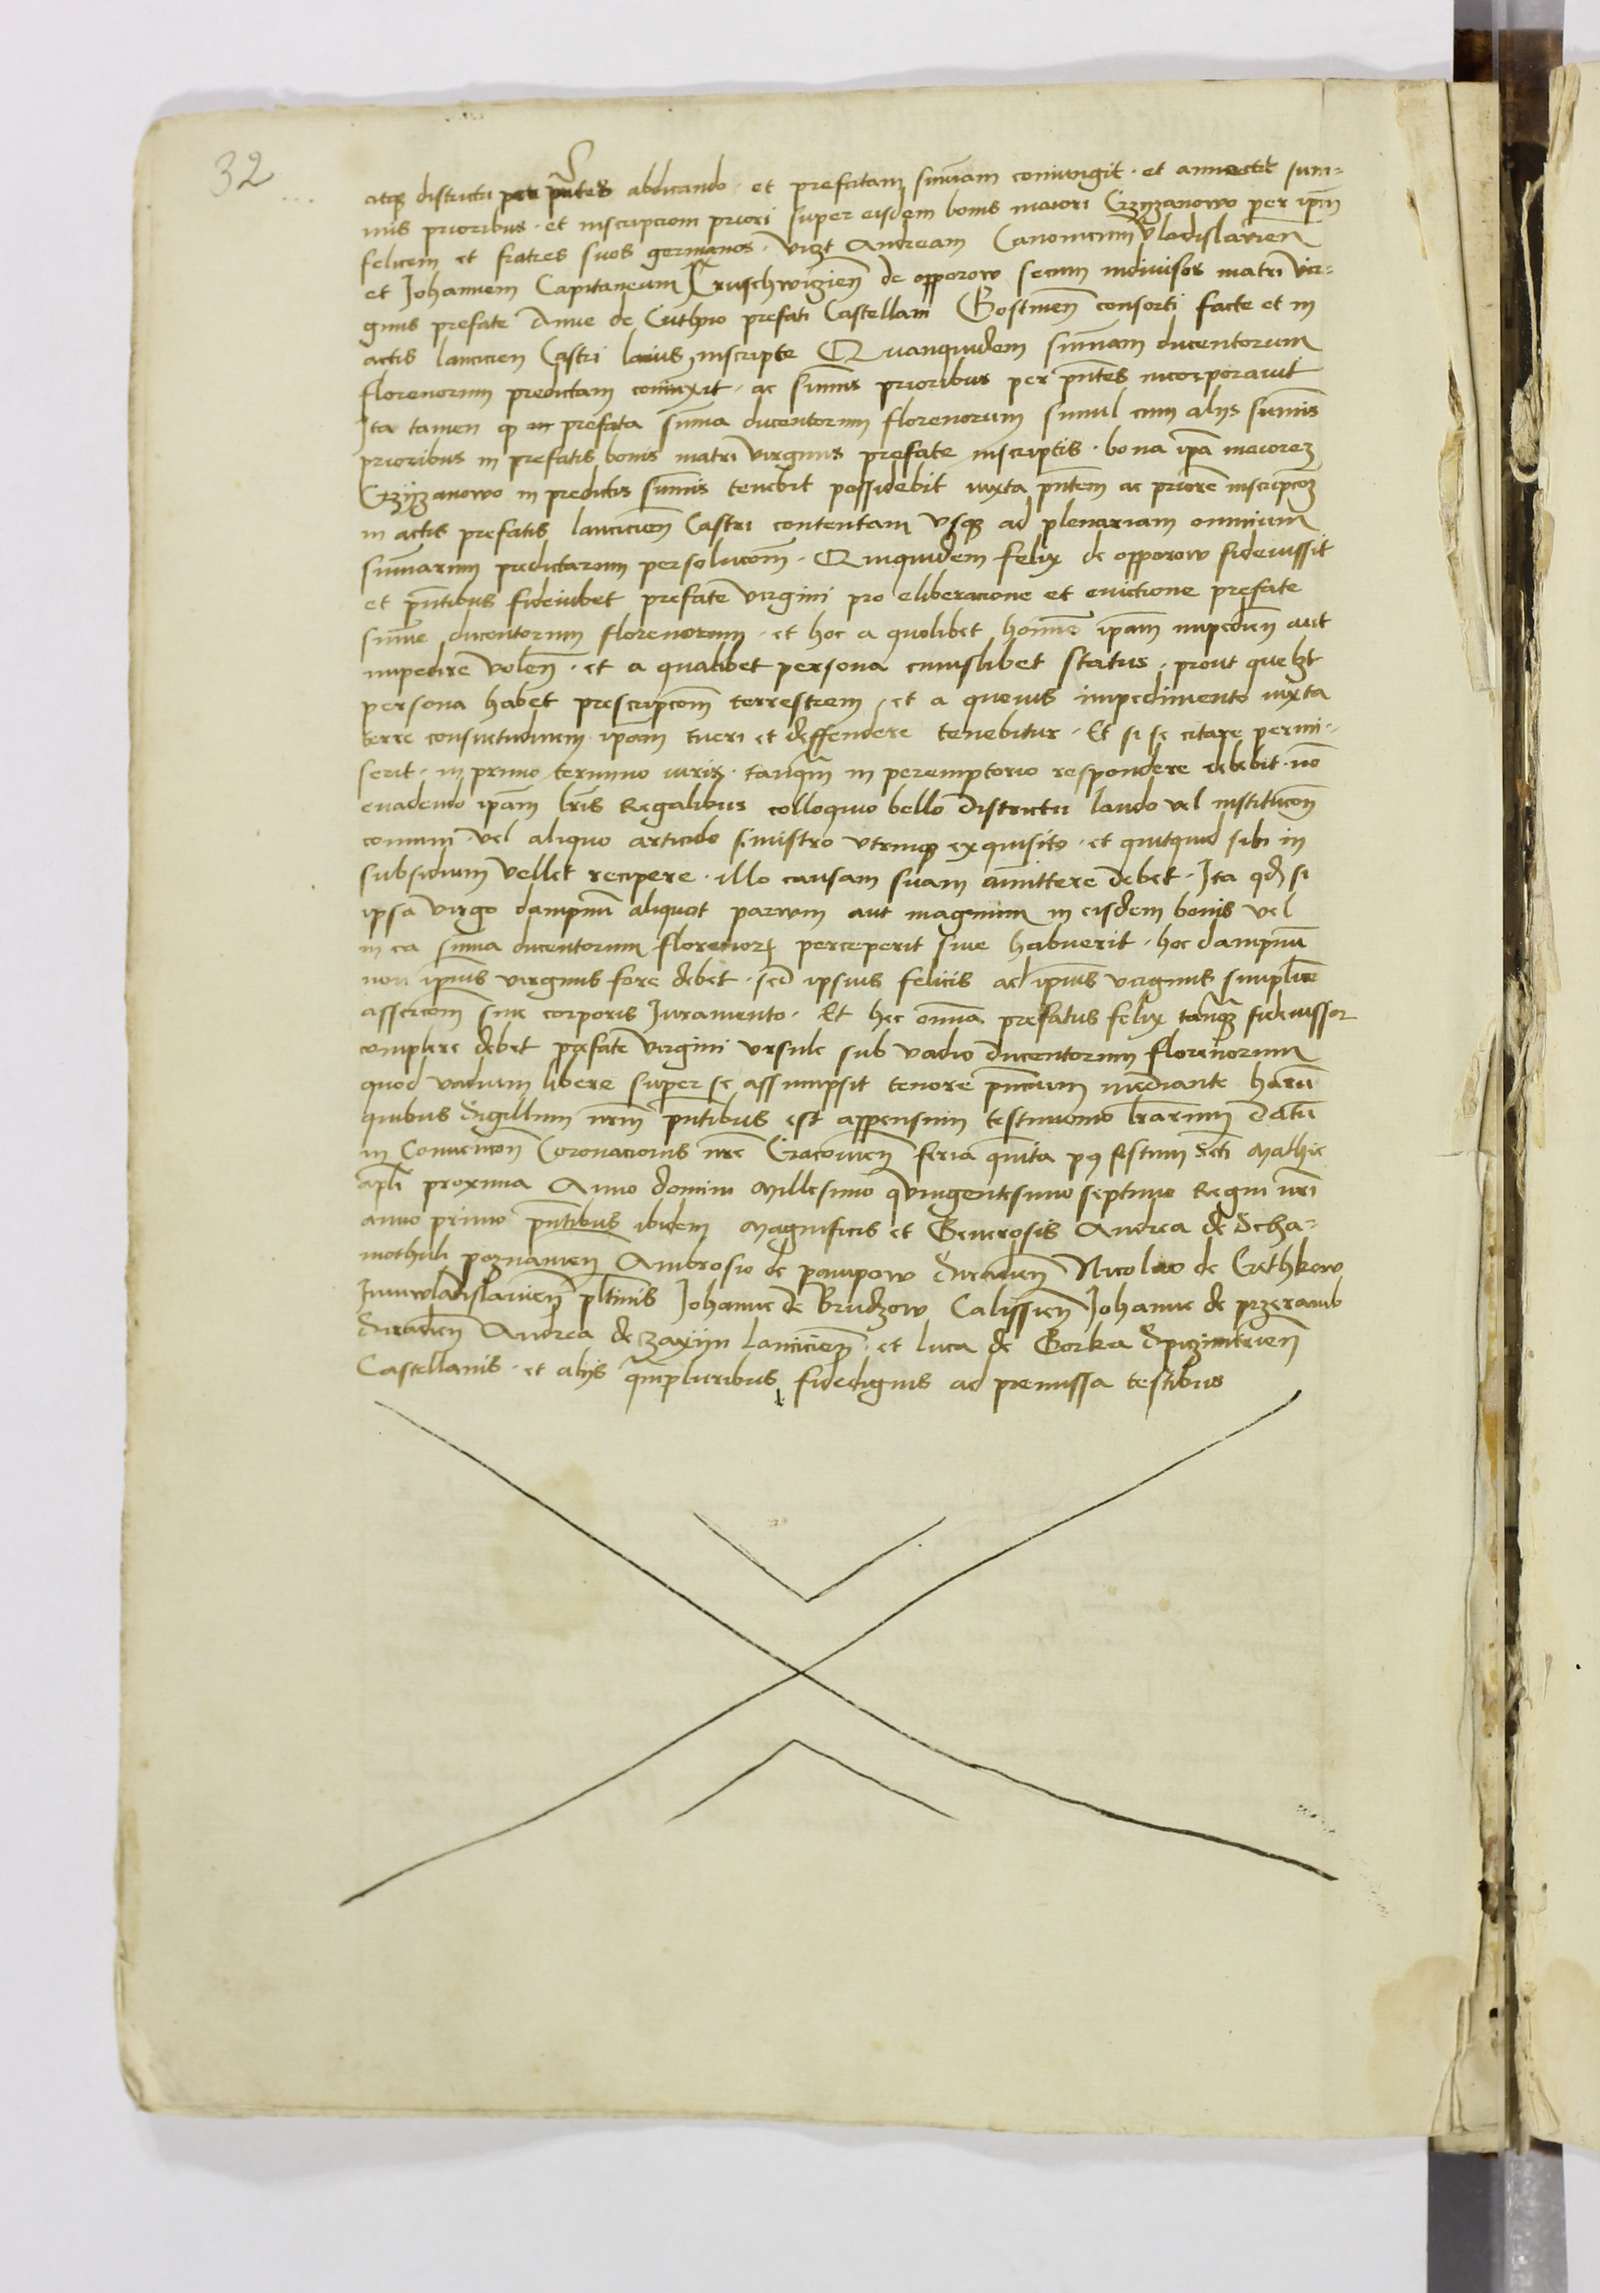 32
atq districtu per pntes abdicando · et prefatam sumam coniungit · et annectit sum-
mis prioribus · et inscripcioni priori super eisdem bonis maiori Crzyzanowo per ipm
felicem et fratres suos germanos · vizt Andream Canonicum Vladislavien
et Johannem Capitaneum Cruschwicien de opporow secum indivisos matri vir-
ginis prefate Anne de Cuthno prefati Castellani Gostinen consorti facte et in
actis lancicien Castri lacius inscripte Quamquidem sumam ducentorum
florenorum predictam coniunxit · ac sumis prioribus per pntes incorporavit
Ita tamen q in prefata suma ducentorum florenorum simul cum alys sumis
prioribus in prefatis bonis matri virginis prefate inscriptis · bona ipa maiorem
Crzyzanowo in predictis sumis tenebit possidebit iuxta pntem ac priorem inscripcom
in actis prefatis lancicien Castri contentam usq ad plenariam omnium
sumarum predictarum persolucom · Quiquidem felix de opporow fideiussit
et pntibus fideiubet prefate virgini pro eliberacione et evictione prefate
sume ducentorum florenorum · et hoc a quolibet homine ipam impedien aut
impedire volen · et a qualibet persona cuiuslibet status · prout quelzt
persona habet prescripcom terrestrem · et a quovis impedimento iuxta
terre consuetudinem ipam tueri et deffendere tenebitur · Et si se citare permi-
serit · in primo termino iuris · tanqm in peremptorio respondere debebit · no
evadendo ipam lris Regalibus colloquio bello districtu laudo vel institucom
comuni · vel aliquo articulo sinistro utrinq exquisito · et quitquid sibi in
subsidium vellet recipere · illo causam suam amittere debet · Ita qd si
ipsa virgo dampnu aliquot parvum aut magnum in eisdem bonis vel
in ea suma ducentorum florenorz perceperit sive habuerit · hoc dampnu
non ipius virginis fore debet · sed ipsius felicis ad ipius virginis simplicem
assercom sine corporis Juramento · Et hec omnia prefatus felix tanqz fideiussor
complere debet prefate virgini ursule sub vadio ducentorum florenorum
quod vadium libere super se assumpsit tenore pncium mediante haru
quibus Sigillum nrm pntibus est appensum testimonio lrarum Datu
in Convencon Coronacionis nre Cracovien feria quinta p9 festum Scti Mathie
apli proxima Anno domini Millesimo quingentesimo septimo Regni nri
anno primo pntibus ibidem Magnificis et Generosis Andrea de Scha-
mothuli poznanien Ambrosio de pampow Siradien Nicolao de Crethkow
Juniwladislavien pltinis Johanne de Brudzow Calissien Johanne de przeramb
Siradien Andrea de zaxijn lancicien · et luca de Gorka Spiczimirien
Castellanis · et alys qmpluribus fidedignis ad premissa testibus